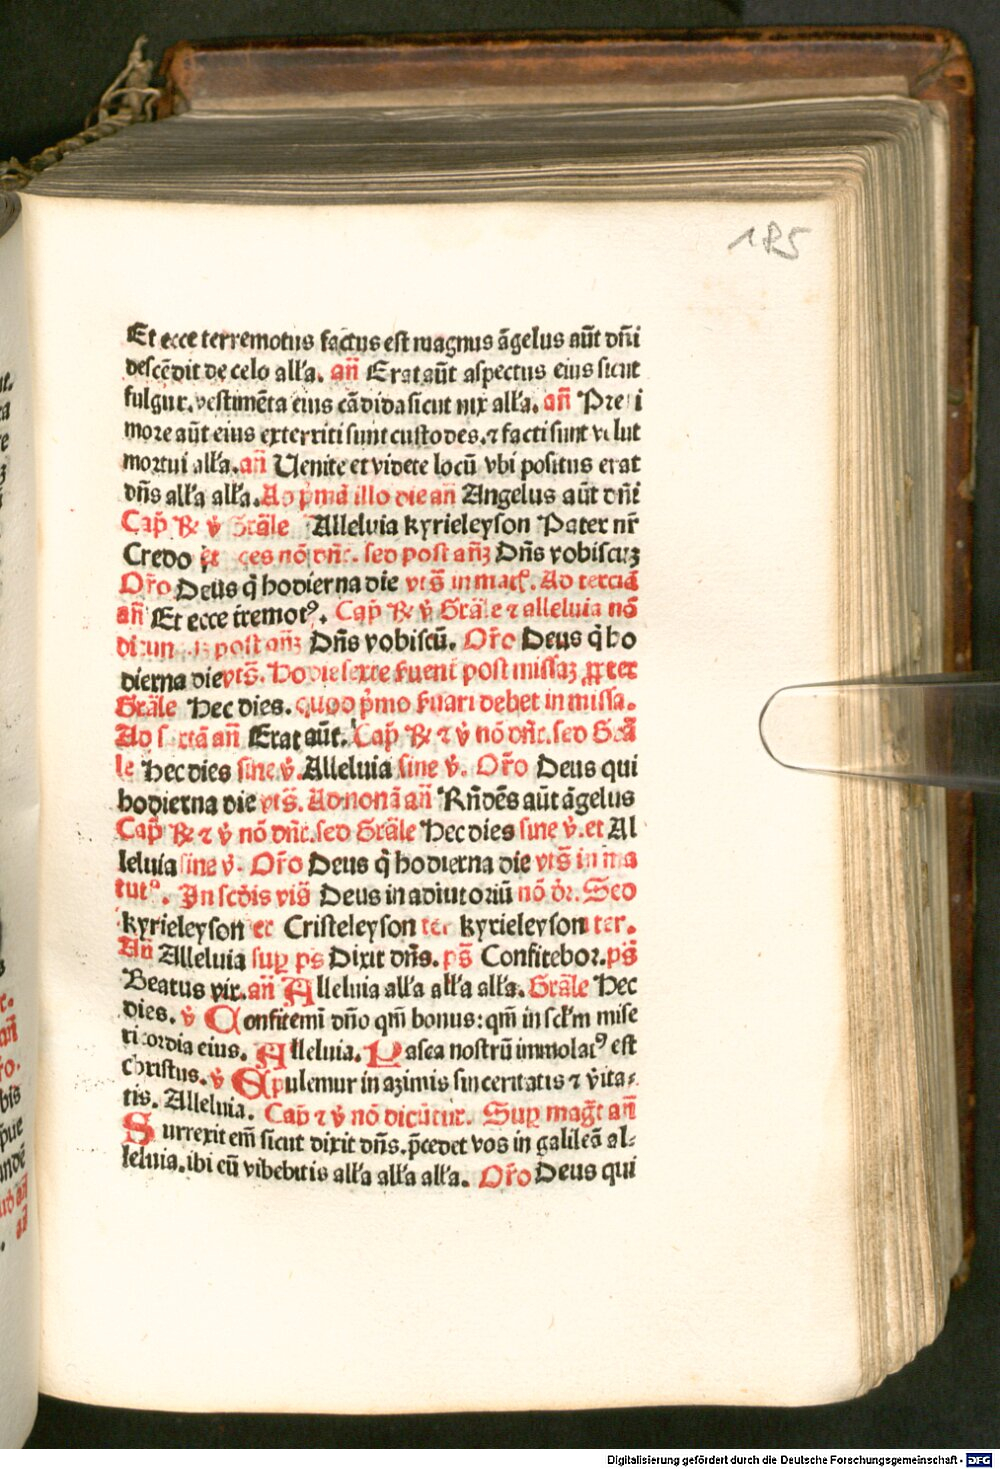 185
Et ecce terremotus factus est magnus āgelus aūt dn̄i
descēdit de celo all'a. an̄ Erat aūt aspectus eius sicut
fulgur. vestimēta eius cādida sicut nix all'a. an̄ Pre i
more aūt eius exterriti sunt custodes. ⁊ facti sunt vlut
mortui all'a. an̄ Uenite et videte locū vbi positus erat
dn̄s all'a all'a. Ad p̄mā illo die an̄ Angelus aūt dn̄i
Cap̄ ℟ ⁊ v̄ Grāle Alleluia kyrieleyson Pater nr̄
Credo et ces nō dn̄r. sed post an̄ꝫ Dn̄s vobiscuꝫ
Or̄o Deus q̄ hodierna die vts̄ in mat. Ad terciā
an̄ Et ecce t̄remotꝰ. Cap̄ ℟ v̄ Grāle ⁊ alleluia nō
dicun post an̄ꝫ Dn̄s vobiscū. Or̄o Deus q̄ ho
dierna die vts̄. Hodie sexte fuent post missaꝫ ꝓpter
Grāle Hec dies. quod p̄mo fuari debet in missa.
Ad sextā an̄ Erat aūt. Cap̄ ℟ ⁊ v̄ nō dn̄r. sed Grā
le Hec dies sine v̄. Alleluia sine v̄. Or̄o Deus qui
hodierna die vts̄. Ad nonā an̄ Rn̄dēs aūt āgelus
Cap̄ ℟ ⁊ v̄ nō dn̄r. sed Grāle Hec dies sine v̄. et Al
leluia sine v̄. Or̄o Deus q̄ hodierna die vts̄ in ma
tutꝰ. In scd̄is vis̄ Deus in adiutoriū nō dr̄. Sed
kyrieleyson ter Cristeleyson ter kyrieleyson ter.
An̄ Alleluia suꝑ ps̄ Dixit dn̄s. ps̄ Confitebor. ps̄
Beatus vir. an̄ Alleluia all'a all'a all'a. Grāle Hec
dies. v̄ Confitemī dn̄o qm̄ bonus: qm̄ in sclm̄ mise
ricordia eius. Alleluia. Pasca nostrū immolatꝰ est
christus. v̄ Epulemur in azimis sinceritatis ⁊ v̄ita⸗
tis. Alleluia. Cap̄ ⁊ v̄ nō dicūtur. Suꝑ maḡt an̄
Surrexit em̄ sicut dixit dn̄s. p̄cedet vos in galileā al⸗
leluia. ibi eū videbitis all'a all'a all'a. Or̄o Deus qui
Digitalisierung gefördert durch die Deutsche Forschungsgemeinschaft - DFG